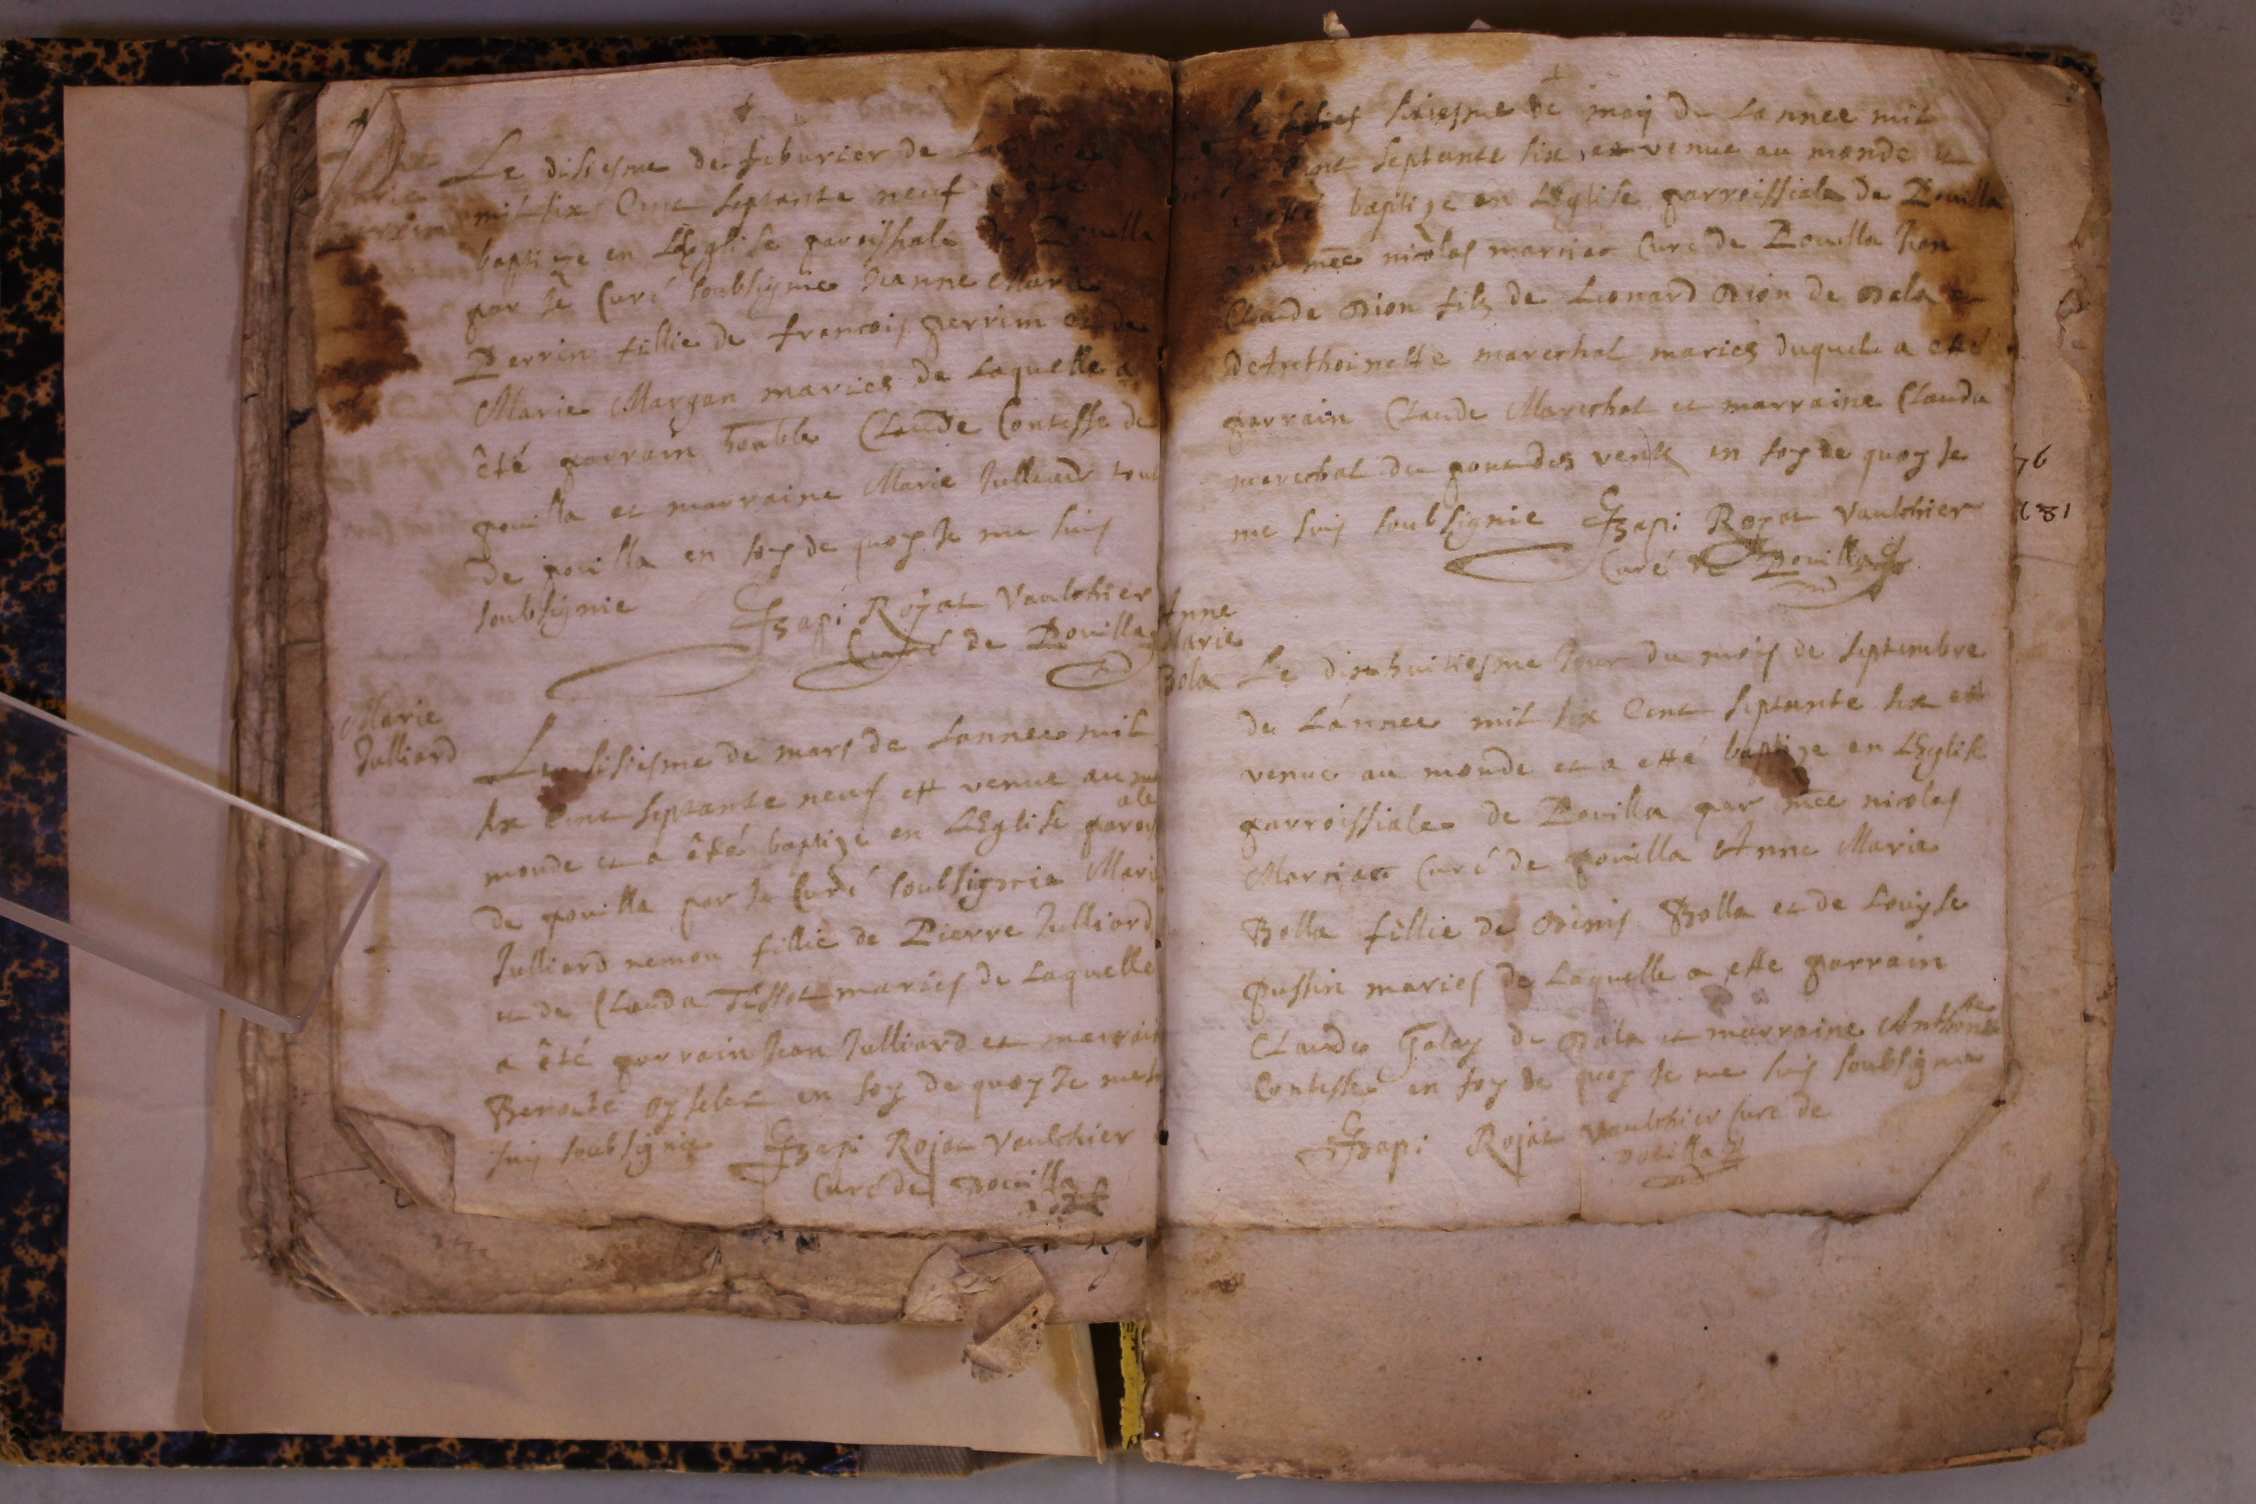 Le disiesme de feburier de
mil six Cent septante neuf a été
baptize en LEglise paroishale de Pouilla
par Je Curé soubsignie Jeanne Marie
Perrin fillie de francois perrin et de
Marie Margan maries de Laquelle a
été parrain honble Claude Contesse de
pouilla et marraine Marie Julliard tous
de pouilla en foy de quoy Je me suis
soubsignie Chapi Royat Vaulchier
Curé de Pouilla
Marie
Julliard
Le sisiesme de mars de Lannee mil
six Cent septante neuf est venue au
monde et a été baptize en LEglise parois
ale
de pouilla par Je Curé soubsignie Marie
Julliard nemou fillie de Pierre Julliard
et de Clauda Tissot maries de Laquelle
a été parrain Jean Julliard et marrain
en foy de quoy Je me
suis soubsignie Chapi Rojat Vaulchier
Curé de Pouilla
sixiesme de may de Lannee mil
Cent septante six est venue au monde et
esté baptize en LEglise parroissiale de Pouilla
par mre nicolas marciat Curé de Pouilla Jean
Claude Dion filz de Leonard Dion de Dala et
de Anthoinette mareschal mariez duquel a esté
parrain Claude Mareschal et marraine Clauda
mareschal du en foy de quoy Je
me suis soubsignie Chapi Royat Vaulchier
Curé de Pouilla
76
681
Anne
Marie
Bola
Le dixhuitiesme Jour du mois de septembre
de Lánnee mil six Cent septante six est
venue au monde et a esté baptize en LEglise
parroissiale de Pouilla par mre nicolas
Marciat Curé de pouilla Anne Marie
Bolla fillie de Denis Bolla et de Louyse
pussin maries de Laquelle a esté parrain
Claude Galay de Dala et marraine Anthoinette
Contesse en foy de quoy Je me suis soubsigne
Chapi Rojat Vaulchier Curé de
pouilla